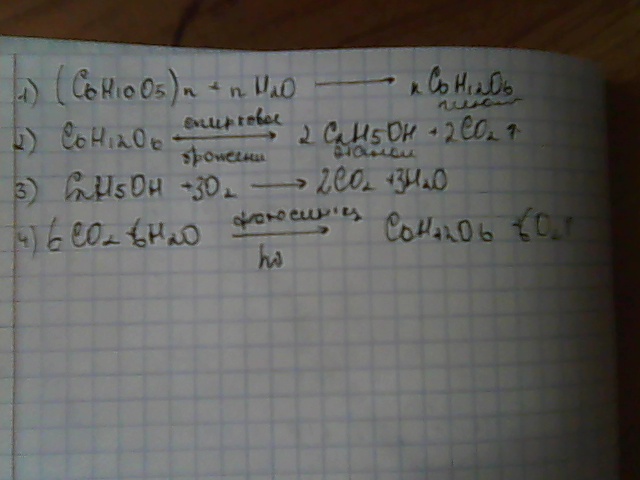 1) (C6H10O5)n + n H2O → n C6H12O6
глюкоза
2) C6H12O6 спиртовое брожение 2 C2H5OH + 2CO2 ↑
этанол
3) C2H5OH + 3O2 → 2CO2 + 3H2O
4) 6 CO2 + 6H2O фотосинтез hν → C6H12O6 + 6O2↑